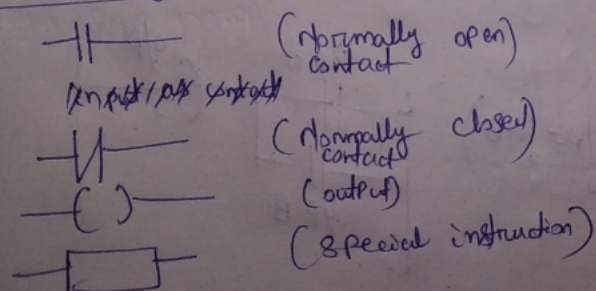 (Normally open)
contact
(Normally closed)
contact
(output)
(special instruction)